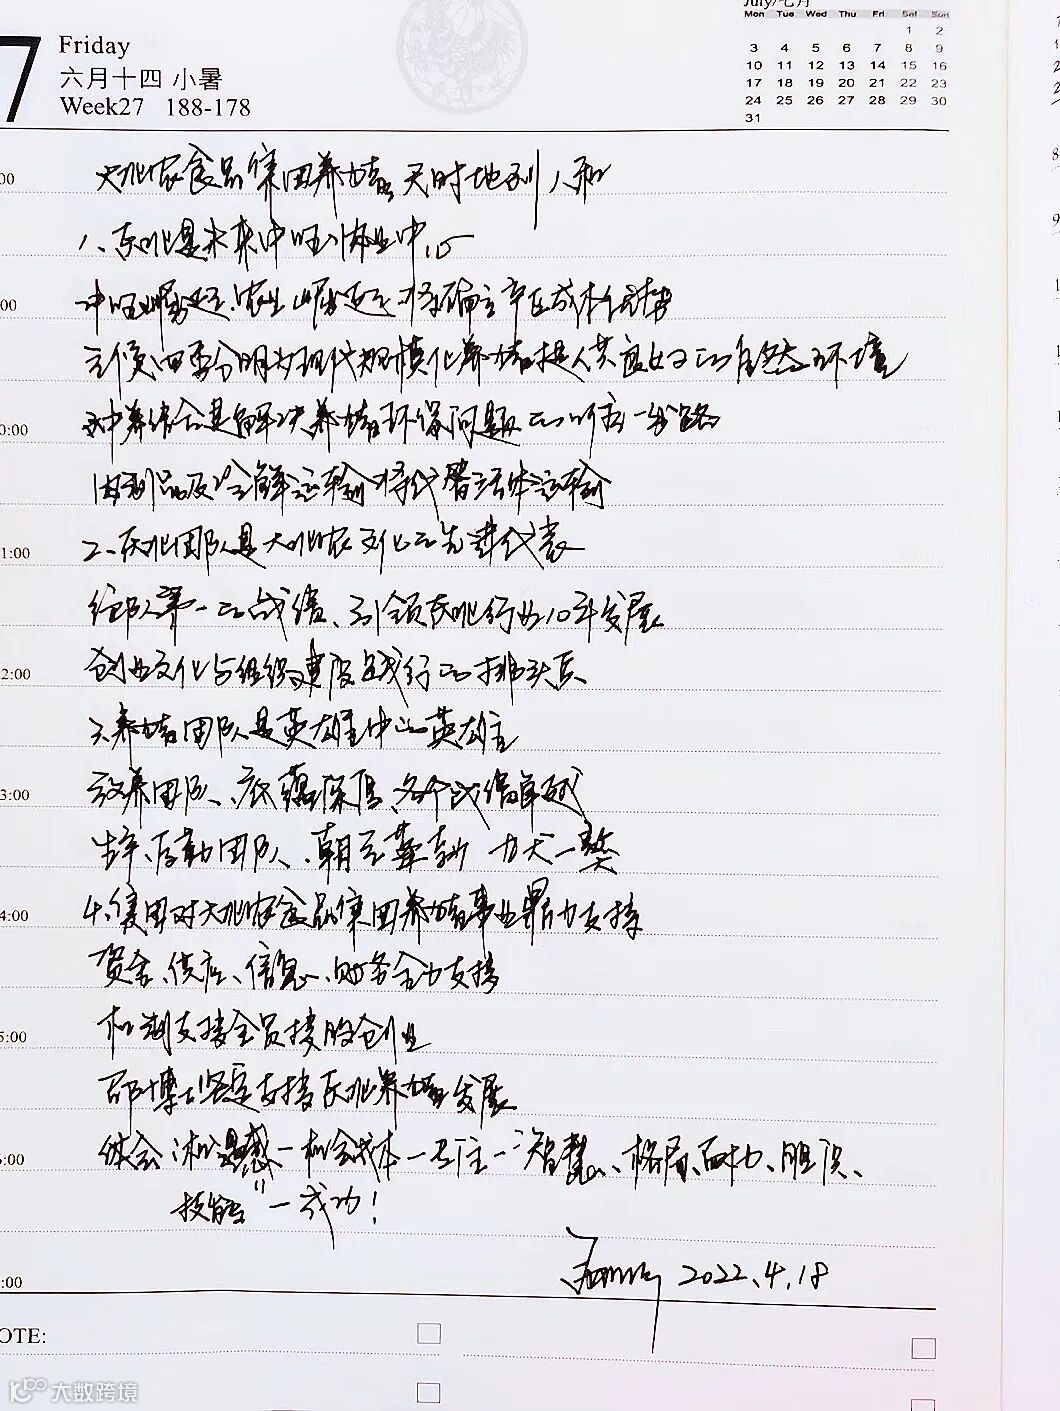 July/七月
Mon Tue Wed Thu Fri Sat Sun
1 2
3 4 5 6 7 8 9
10 11 12 13 14 15 16
17 18 19 20 21 22 23
24 25 26 27 28 29 30
31
7
Friday
六月十四 小暑
Week27 188-178
大北农食品集团养猪 天时地利人和
1、东北是未来中国猪业中心
中国崛起是农业崛起 将确立 成本优势
四季分明为现代规模化养猪提供良好的自然环境
种养结合是解决养猪环保问题的所 一 路
肉制品及冷鲜运输将代替活体运输
二、东北团队是大北农文化的先进代表
第一的战绩、引领东北行业10年发展
创业文化与组织建设践行的排头兵
3、养猪团队是英雄中的英雄
放养团队、底蕴深厚、各个战绩卓越
生产、后勤团队、朝气蓬勃
4、集团对大北农食品集团养猪事业鼎力支持
资金、供应、信息、财务全力支持
机制支持全员持股创业
邵博士坚定支持东北养猪发展
体会: 机遇感—机会成本—专注—"智慧、格局、 、胆识、
技能"—成功!
2022.4.18
1:00
2:00
3:00
4:00
5:00
6:00
OTE:
大数跨境